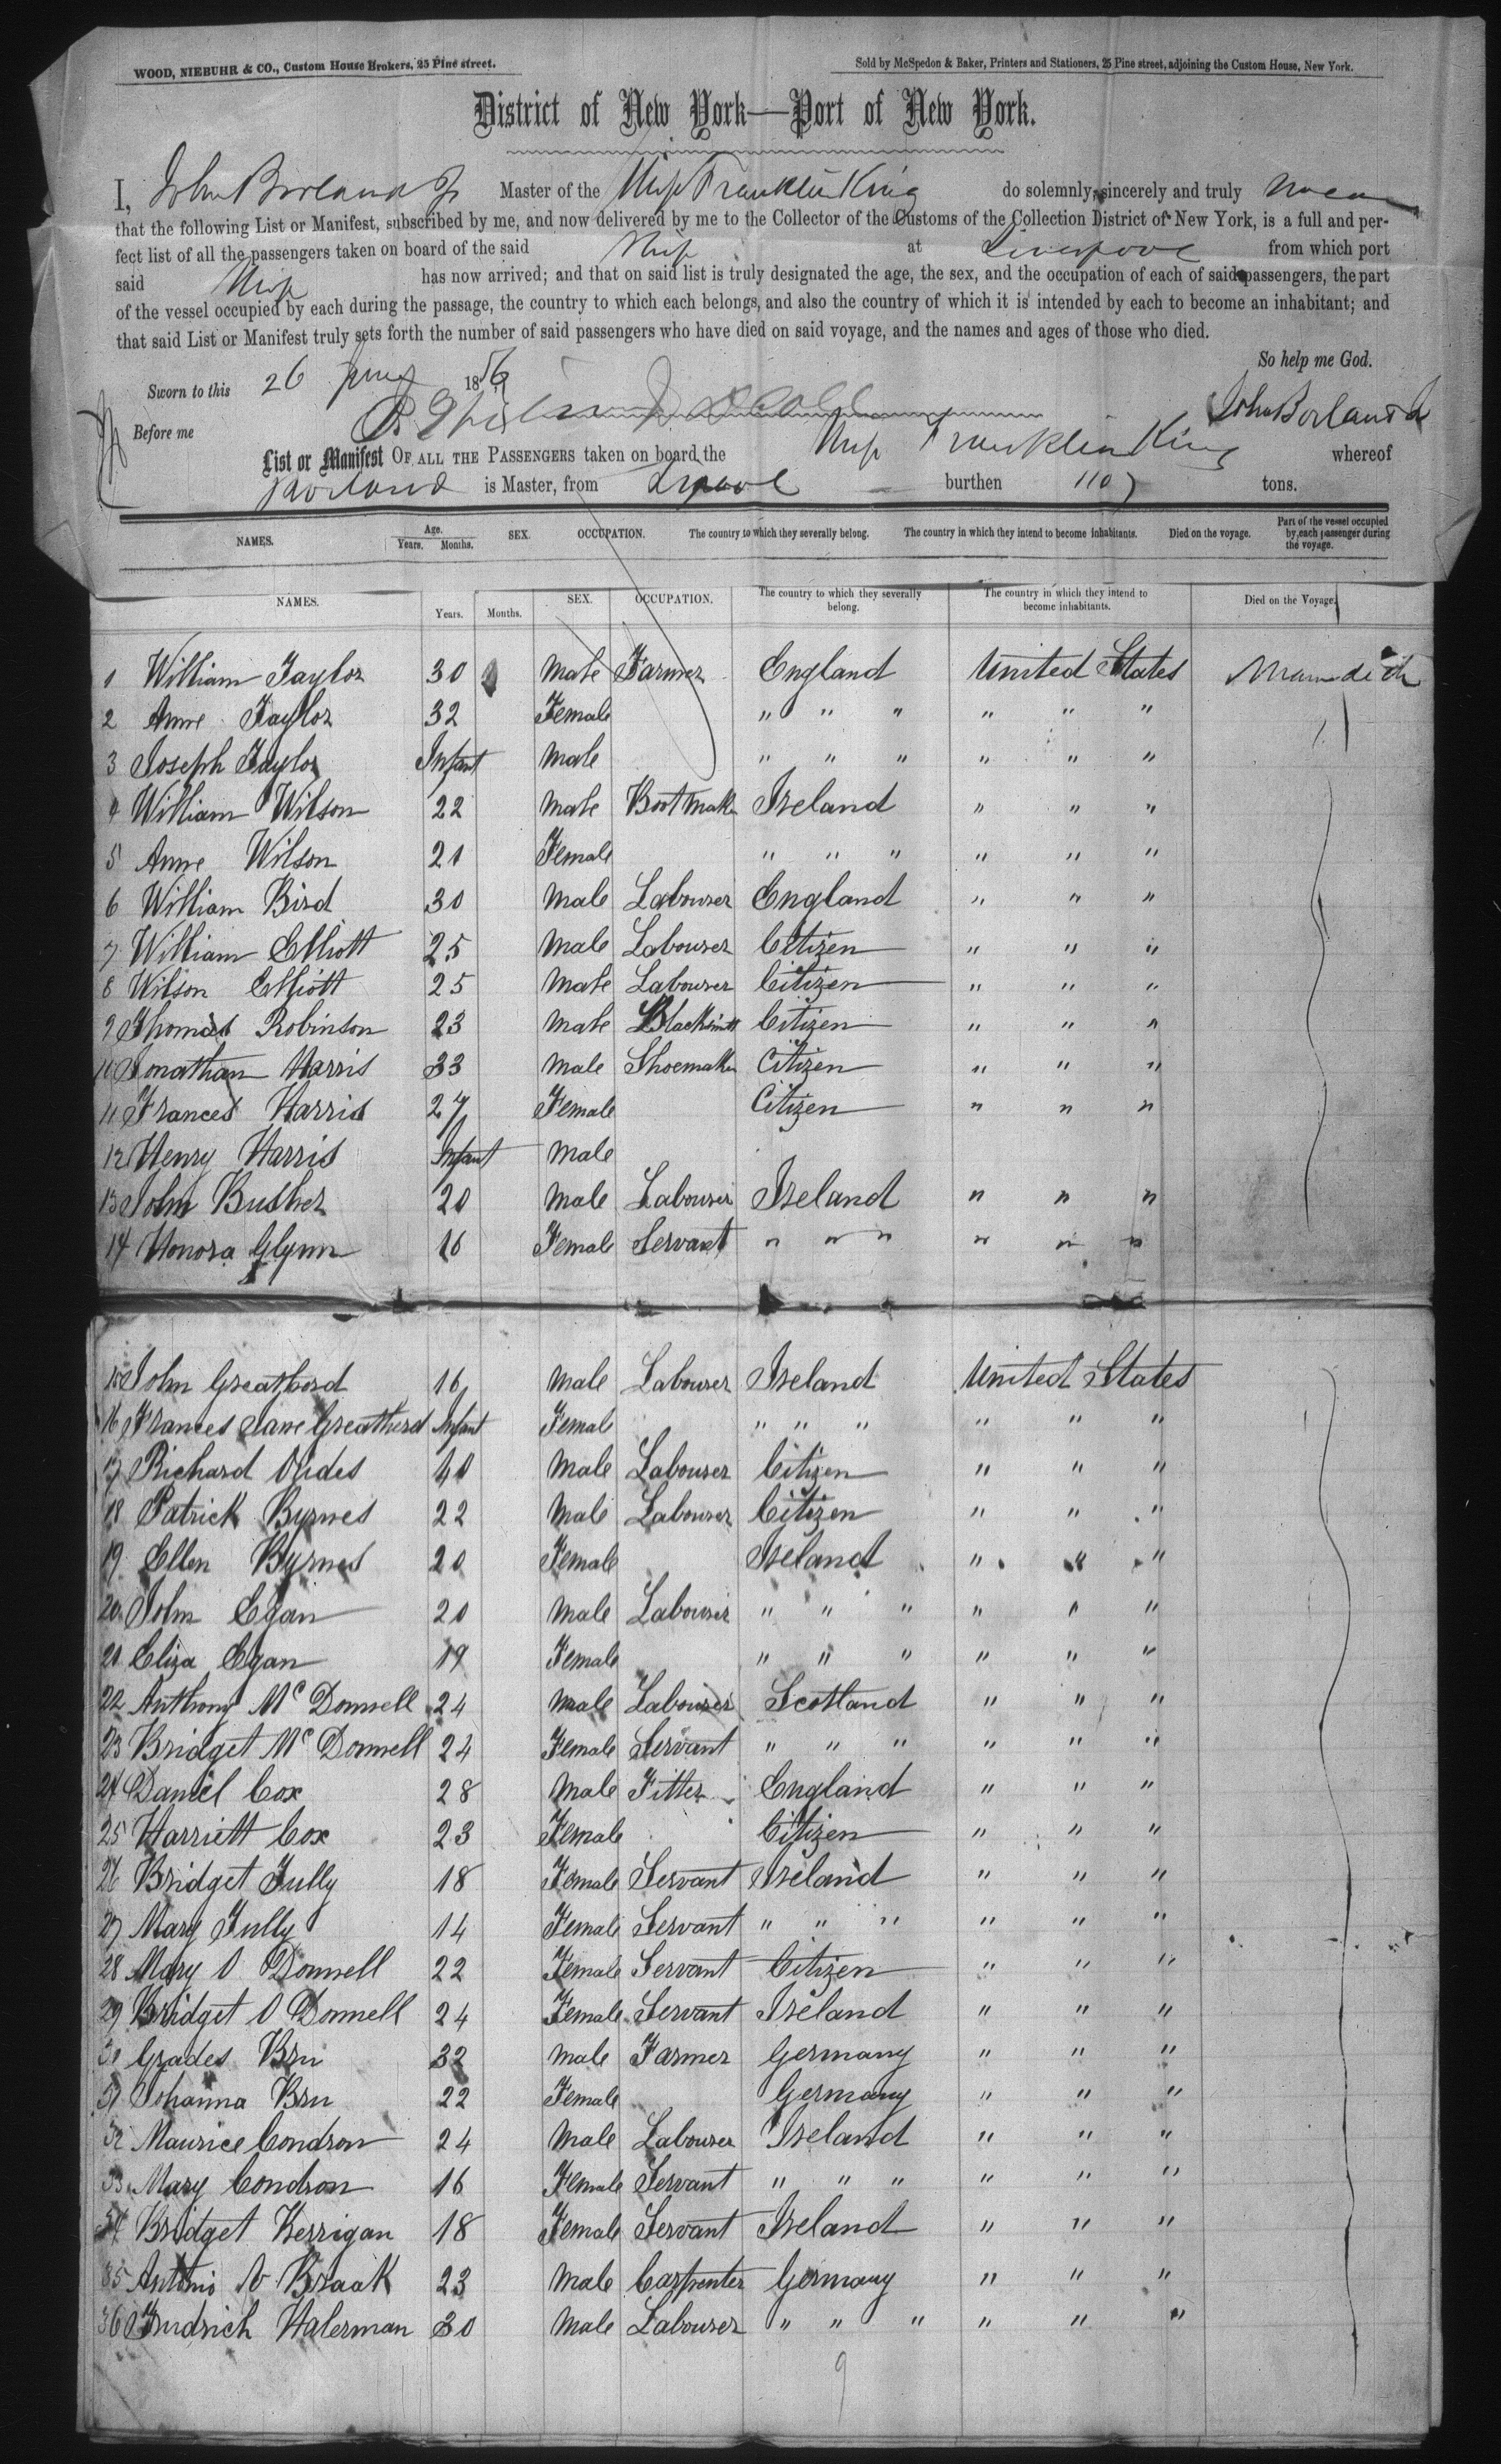 WOOD, NIEBUHR & CO., Custom House Brokers, 25 Pine street.
Sold by McSpedon & Baker, Printers and Stationers, 25 Pine street, adjoining the Custom House, New York.
District of New York—Port of New York.
I, John Borland Jr Master of the Ship Franklin King do solemnly, sincerely and truly swear
that the following List or Manifest, subscribed by me, and now delivered by me to the Collector of the Customs of the Collection District of New York, is a full and per-
fect list of all the passengers taken on board of the said Ship at Liverpool from which port
said Ship has now arrived; and that on said list is truly designated the age, the sex, and the occupation of each of said passengers, the part
of the vessel occupied by each during the passage, the country to which each belongs, and also the country of which it is intended by each to become an inhabitant; and
that said List or Manifest truly sets forth the number of said passengers who have died on said voyage, and the names and ages of those who died.
So help me God.
Sworn to this 26 1856
John Borland Jr
Before me
List or Manifest OF ALL THE PASSENGERS taken on board the Ship Franklin King whereof
Borland is Master, from Lpool burthen 1107 tons.
NAMES. Age. Years. Months. SEX. OCCUPATION. The country to which they severally belong. The country in which they intend to become inhabitants. Died on the voyage. Part of the vessel occupied by each passenger during the voyage.
NAMES. Years. Months. SEX. OCCUPATION. The country to which they severally belong. The country in which they intend to become inhabitants. Died on the Voyage.
1 William Taylor 30 Male Farmer England United States
2 Anne Taylor 32 Female " " " " " "
3 Joseph Taylor Infant Male " " " " " "
4 William Wilson 22 Male Boot Maker Ireland " " "
5 Anne Wilson 21 Female " " " " " "
6 William Bird 30 Male Labourer England " " "
7 William Elliott 25 Male Labourer Citizen " " "
8 Wilson Elliott 25 Male Labourer Citizen " " "
9 Thomas Robinson 23 Male Blacksmith Citizen " " "
10 Jonathan Harris 33 Male Shoemaker Citizen " " "
11 Frances Harris 27 Female Citizen " " "
12 Henry Harris Infant Male
13 John Busher 20 Male Labourer Ireland " " "
14 Honora Glynn 16 Female Servant " " " " " "
15 John Greatherd 16 Male Labourer Ireland United States
16 Frances Jane Greatherd Infant Female " " " " " "
17 Richard Vides 40 Male Labourer Citizen " " "
18 Patrick Byrnes 22 Male Labourer Citizen " " "
19 Ellen Byrnes 20 Female Ireland " " "
20 John Egan 20 Male Labourer " " " " " "
21 Eliza Egan 19 Female " " " " " "
22 Anthony McDonnell 24 Male Labourer Scotland " " "
23 Bridget McDonnell 24 Female Servant " " " " " "
24 Daniel Cox 28 Male Fitter England " " "
25 Harriett Cox 23 Female Citizen " " "
26 Bridget Tully 18 Female Servant Ireland " " "
27 Mary Tully 14 Female Servant " " " " " "
28 Mary O Donnell 22 Female Servant Citizen " " "
29 Bridget O Donnell 24 Female Servant Ireland " " "
30 Grades Bru 32 Male Farmer Germany " " "
31 Johanna Bru 22 Female Germany " " "
32 Maurice Condron 24 Male Labourer Ireland " " "
33 Mary Condron 16 Female Servant " " " " " "
34 Bridget Kerrigan 18 Female Servant Ireland " " "
35 Antonio V Braak 23 Male Carpenter Germany " " "
36 Frudrich Halerman 30 Male Labourer " " " " " "
9